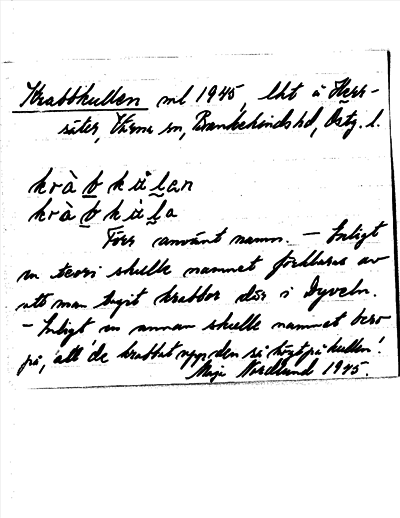 Krabbkullen ml 1945, lht å Herr-
säter, Värna sn, Bankekinds hd, Östg. l.
kràbkúlan
kràbkúla
Förr använt namn. – Enligt
en teori skulle namnet förklaras av
att man tagit krabbor där i Dyveln.
– Enligt en annan skulle namnet bero
på, att de krabbat upp den så högt på kullen!
Maja Nordlund 1945.